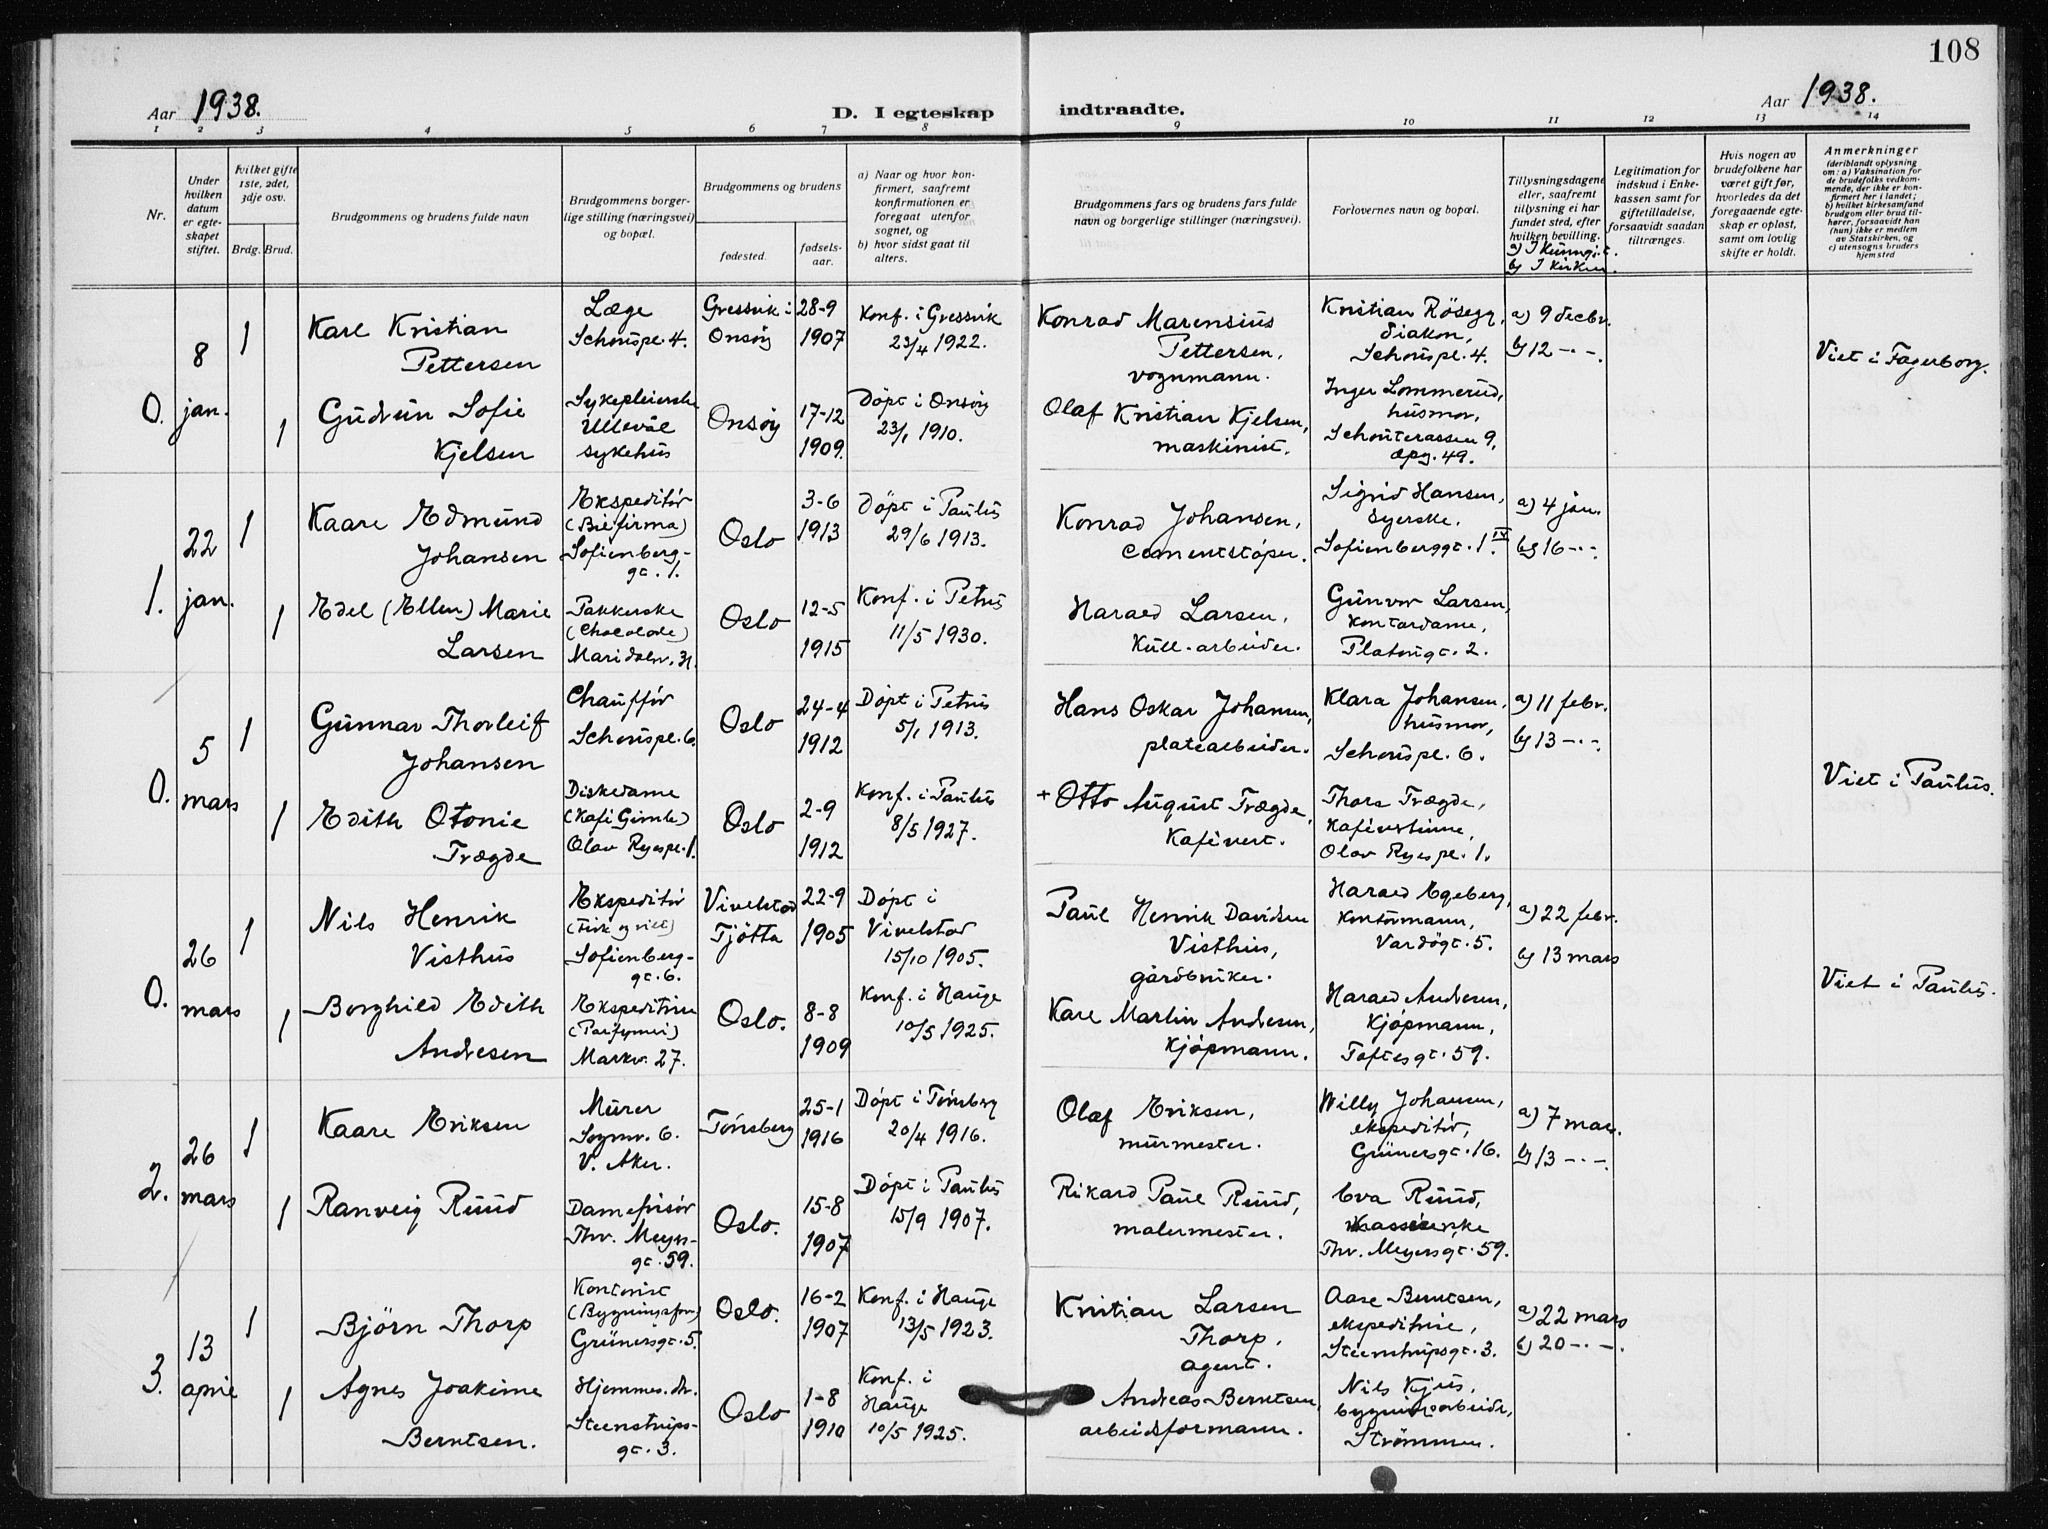 108
Aar 1938.
D. I egteskap indtraadte.
Aar 1938.
1 2 3 4 5 6 7 8 9 10 11 12 13 14
Nr.
Under
hvilken
datum
er egte-
skapet
stiftet.
Hvilket gifte
1ste, 2det,
3dje osv.
Brdg. Brud.
Brudgommens og brudens fulde navn
Brudgommens borger-
lige stilling (næringsvei)
og bopæl.
Brudgommens og brudens
fødested.
fødsels-
aar.
a) Naar og hvor kon-
firmert, saafremt
konfirmationen er
foregaat utenfor
sognet, og
b) hvor sidst gaat til
alters.
Brudgommens fars og brudens fars fulde
navn og borgerlige stillinger (næringsvei).
Forlovernes navn og bopæl.
Tillysningsdagene
eller, saafremt
tillysning ei har
fundet sted, efter
hvilken bevilling.
b) I kirken.
Legitimation for
indskud i Enke-
kassen samt for
giftetilladelse,
forsaavidt saadan
tiltrænges.
Hvis nogen av
brudefolkene har
været gift før,
hvorledes da det
foregaaende egte-
skap er opløst,
samt om lovlig
skifte er holdt.
Anmerkninger
(deriblandt oplysning
om: a) Vaksination for
de brudefolks vedkom-
mende, der ikke er kon-
firmert her i landet;
b) hvilket kirkesamfund
brudgom eller brud til-
hører, forsaavidt han
(hun) ikke er medlem
av Statskirken, og
c) utensogns bruders
hjemsted
0.
8
jan.
1
Kare Kristian
Pettersen
Læge
Schouspl. 4.
Gressvik i
Onsøy
28-9
1907
Konf. i Gressvik
23/4 1922.
Konrad Marensius
Pettersen,
vognmann.
Kristian Røsegg,
diakon,
Schouspl. 4.
a) 9 decbr.
b) 12 -·-.
Viet i Fagerborg.
1
Gudrun Sofie
Kjelsen
Sykepleierske
Ullevål
sykehus
Onsøy
17-12
1909.
Døpt i Onsøy
23/1 1910.
Olaf Kristian Kjelsen,
maskinist.
Inger Lommerud,
husmor,
Schouterassen 9,
opg. 49.
1.
22
jan.
1
Kaare Edmund
Johansen
Ekspeditør
Sofienberg-
gt. 1.
Oslo
3-6
1913
Døpt i Paulus
29/6 1913.
Konrad Johansen,
Cementstøper.
Sigrid Hansen,
Syerske.
Sofienberggt. 1 IV.
a) 4 jan.
b) 16 -·-.
1
Edel (Ellen) Marie
Larsen
Pakkerske
(Chocolade)
Maridalsv. 31.
Oslo
12-5
1915
Konf. i Petrus
11/5 1930.
Harald Larsen,
Kull-arbeider.
Gunvor Larsen,
kontordame,
Platougt. 2.
0.
5
mars
1
Gunnar Thorleif
Johansen
Chauffør
Schouspl. 6.
Oslo
24-4
1912
Døpt i Petrus
5/1 1913.
Hans Oskar Johansen,
platearbeider.
Klara Johansen,
husmor,
Schouspl. 6.
a) 11 febr.
b) 13 -·-.
Viet i Paulus.
1
Edith Otonie
Trægde
Diskedame
(Kafé Gimle)
Olav Ryespl. 1.
Oslo
2-9
1912
Konf. i Paulus
8/5 1927.
+ Otto August Trægde,
Kafévert.
Thora Trægde,
Kafévertinne,
Olav Ryespl. 1.
0.
26
mars
1
Nils Henrik
Visthus
Ekspeditør
(Fisk og vilt)
Sofienberg-
gt. 6.
Vivelstad
Tjøtta
22-9
1905
Døpt i
Vivelstad
15/10 1905.
Paul Henrik Davidsen
Visthus,
gårdbruker.
Harald Egeberg,
Kontormann,
Vardøgt. 5.
a) 22 febr.
b) 13 mars
Viet i Paulus.
1
Borghild Edith
Andresen
Ekspeditrise
(Parfymeri)
Markv. 27.
Oslo.
8-8
1909
Konf. i Hauge
10/5 1925.
Kare Martin Andresen,
Kjøpmann.
Harald Andresen,
Kjøpmann,
Toftesgt. 59.
2.
26
mars
1
Kaare Eriksen
Murer
Sognsv. 6.
V. Aker.
Tønsberg
25-1
1916
Døpt i Tønsberg
20/4 1916.
Olaf Eriksen,
murmester.
Willy Johansen,
ekspeditør,
Grünersgt. 16.
a) 7 mars.
b) 13 -·-.
1
Ranveig Ruud
Damefrisør
Thv. Meyers-
gt. 59.
Oslo.
15-8
1907
Døpt i Paulus
15/9 1907.
Rikard Paul Ruud,
malermester.
Eva Ruud,
Kasserske
Thv. Meyersgt. 59.
3.
13
april
1
Bjørn Thorp
Kontorist
(Bygningsforr.)
Grünersgt. 5.
Oslo.
16-2
1907
Konf. i Hauge
13/5 1923.
Kristian Larsen
Thorp,
agent.
Aase Berntsen,
ekspeditrise,
Steenstrupsgt. 3.
a) 22 mars
b) 20 -·-.
1
Agnes Joakime
Berntsen.
Hjemmev. dtr.
Steenstrups-
gt. 3.
Oslo
1-8
1910
Konf. i
Hauge
10/5 1925.
Andreas Berntsen,
arbeidsformann.
Nils Kjus,
bygningsarbeider,
Strømmen.